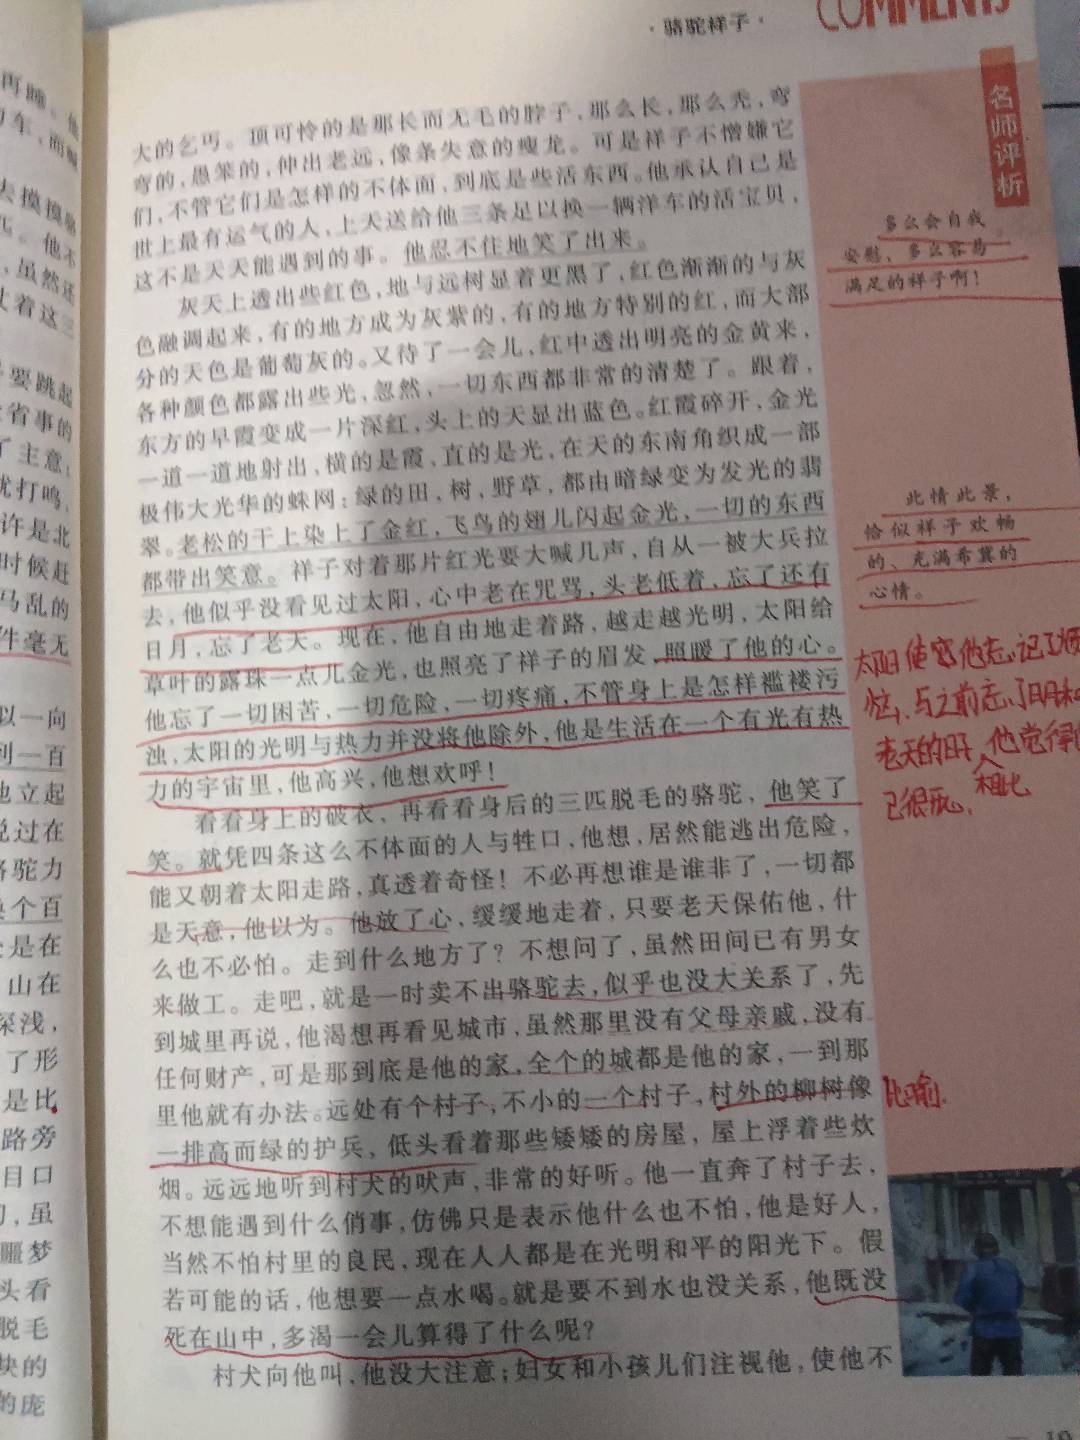 ·骆驼祥子·
COMMENTS
名师评析
大的乞丐。顶可怜的是那长而无毛的脖子，那么长，那么秃，弯
弯的，愚笨的，伸出老远，像条失意的瘦龙。可是祥子不憎嫌它
们，不管它们是怎样的不体面，到底是些活东西。他承认自己是
世上最有运气的人，上天送给他三条足以换一辆洋车的活宝贝，
这不是天天能遇到的事。他忍不住地笑了出来。
灰天上透出些红色，地与远树显着更黑了，红色渐渐的与灰
色融调起来，有的地方成为灰紫的，有的地方特别的红，而大部
分的天色是葡萄灰的。又待了一会儿，红中透出明亮的金黄来，
各种颜色都露出些光，忽然，一切东西都非常的清楚了。跟着，
东方的早霞变成一片深红，头上的天显出蓝色。红霞碎开，金光
一道一道地射出，横的是霞，直的是光，在天的东南角织成一部
极伟大光华的蛛网：绿的田，树，野草，都由暗绿变为发光的翡
翠。老松的干上染上了金红，飞鸟的翅儿闪起金光，一切的东西
都带出笑意。祥子对着那片红光要大喊几声，自从一被大兵拉
去，他似乎没看见过太阳，心中老在咒骂，头老低着，忘了还有
日月，忘了老天。现在，他自由地走着路，越走越光明，太阳给
草叶的露珠一点儿金光，也照亮了祥子的眉发，照暖了他的心。
他忘了一切困苦，一切危险，一切疼痛，不管身上是怎样褴褛污
浊，太阳的光明与热力并没将他除外，他是生活在一个有光有热
力的宇宙里，他高兴，他想欢呼！
看看身上的破衣，再看看身后的三匹脱毛的骆驼，他笑了
笑。就凭四条这么不体面的人与牲口，他想，居然能逃出危险，
能又朝着太阳走路，真透着奇怪！不必再想谁是谁非了，一切都
是天意，他以为。他放了心，缓缓地走着，只要老天保佑他，什
么也不必怕。走到什么地方了？不想问了，虽然田间已有男女
来做工。走吧，就是一时卖不出骆驼去，似乎也没大关系了，先
到城里再说，他渴想再看见城市，虽然那里没有父母亲戚，没有
任何财产，可是那到底是他的家，全个的城都是他的家，一到那
里他就有办法。远处有个村子，不小的一个村子，村外的柳树像
一排高而绿的护兵，低头看着那些矮矮的房屋，屋上浮着些炊
烟。远远地听到村犬的吠声，非常的好听。他一直奔了村子去，
不想能遇到什么俏事，仿佛只是表示他什么也不怕，他是好人，
当然不怕村里的良民，现在人人都是在光明和平的阳光下。假
若可能的话，他想要一点水喝。就是要不到水也没关系，他既没
死在山中，多渴一会儿算得了什么呢？
村犬向他叫，他没大注意；妇女和小孩儿们注视他，使他不
多么会自我
安慰，多么容易
满足的祥子啊！
此情此景，
恰似祥子欢畅
的、充满希冀的
心情。
太阳使
与之前忘了日月和
老天的日子相比，他觉得
已很
比喻.
19
再睡。他
的车，而
去摸摸
匹。他不
，虽然还
丈着这三
要跳起
省事的
了主意：
就打鸣，
许是北
时候赶
马乱的
件毫无
以一向
到一百
地立起
说过在
骆驼力
个百
是在
山在
深浅，
了形
是比
路旁
目口
，虽
噩梦
头看
脱毛
块的
的庞